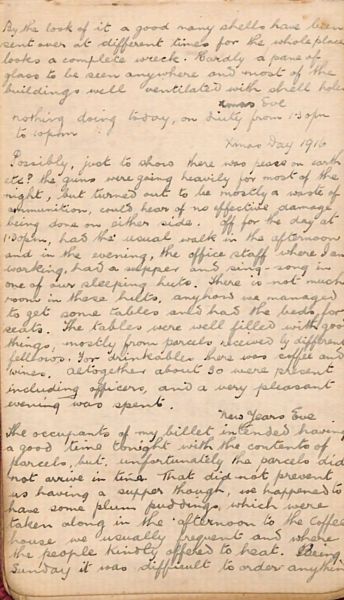 By the look of it a good many shells have been
sent over at different times for the whole place
looks a complete wreck. Hardly a pane of
glass to be seen anywhere and most of the
buildings well ventilated with shell holes
Xmas Eve
nothing doing today, on duty from 1-30pm
to 10pm
Xmas Day 1916
Possibly, just to show there was peace on earth
etc? the guns were going heavily for most of the
night, but turned out to be mostly a waste of
ammunition, could hear of no effective damage
being done on either side. Off for the day at
1-30pm, had the usual walk in the afternoon
and in the evening, the office staff where I am
working, had a supper and sing-song in
one of our sleeping huts. There is not much
room in these huts, anyhow we managed
to get some tables and had the beds for
seats. The tables were well filled with good
things, mostly from parcels received by different
fellows. For drinkables there was coffee and
wines. Altogether about 30 were present
including officers, and a very pleasant
evening was spent.
New Years Eve
The occupants of my billet intended having
a good time tonight with the contents of
parcels, but, unfortunately the parcels did
not arrive in time. That did not prevent
us having a supper though, we happened to
have some plum puddings, which were
taken along in the afternoon to the coffee
house we usually frequent and where
the people kindly offered to heat. Being
Sunday it was difficult to order anything